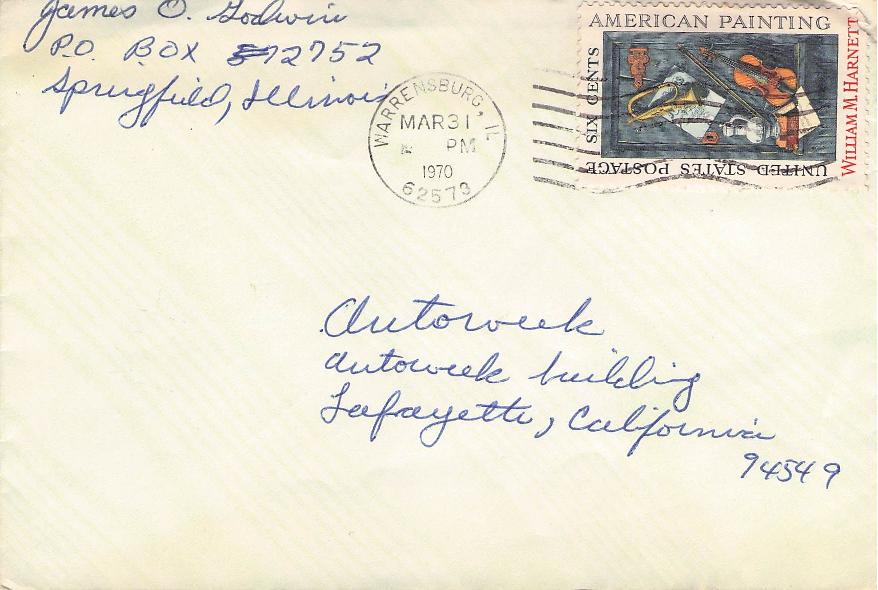 James O. Godwin
P.O. BOX 12752
Springfield, Illinois
WARRENSBURG, IL
MAR 31
PM
1970
62573
AMERICAN PAINTING
SIX CENTS
WILLIAM M. HARNETT
UNITED STATES POSTAGE
Autoweek
autoweek building
Lafayette, California
94549